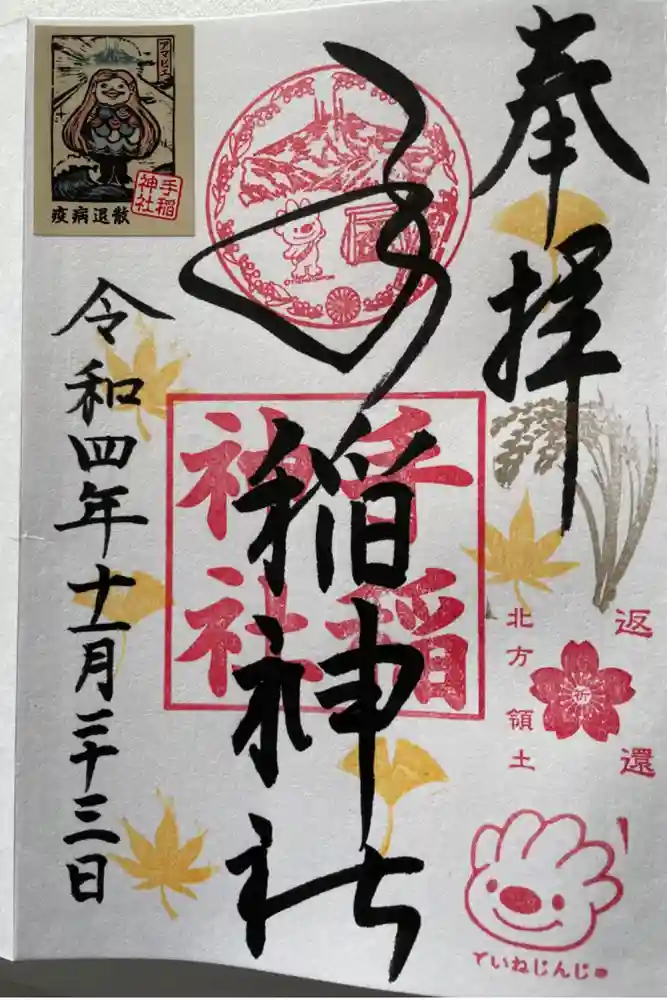 奉拝
北方領土
返還
祈
ていねじんじゃ
手稲神社
手稲
神社
令和四年十一月二十三日
アマビエ
手稲
神社
疫病退散